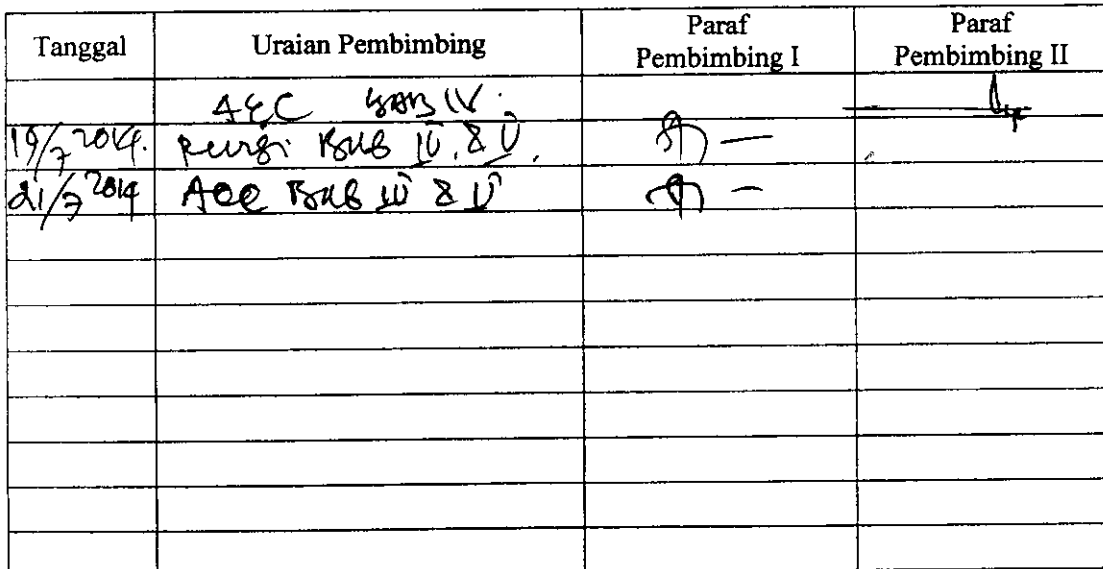 Tanggal Uraian Pembimbing Paraf Pembimbing I Paraf Pembimbing II
ACC BAB IV.
19/7 2014. Revisi BAB IV. & V.
21/7 2014 ACC BAB IV & V